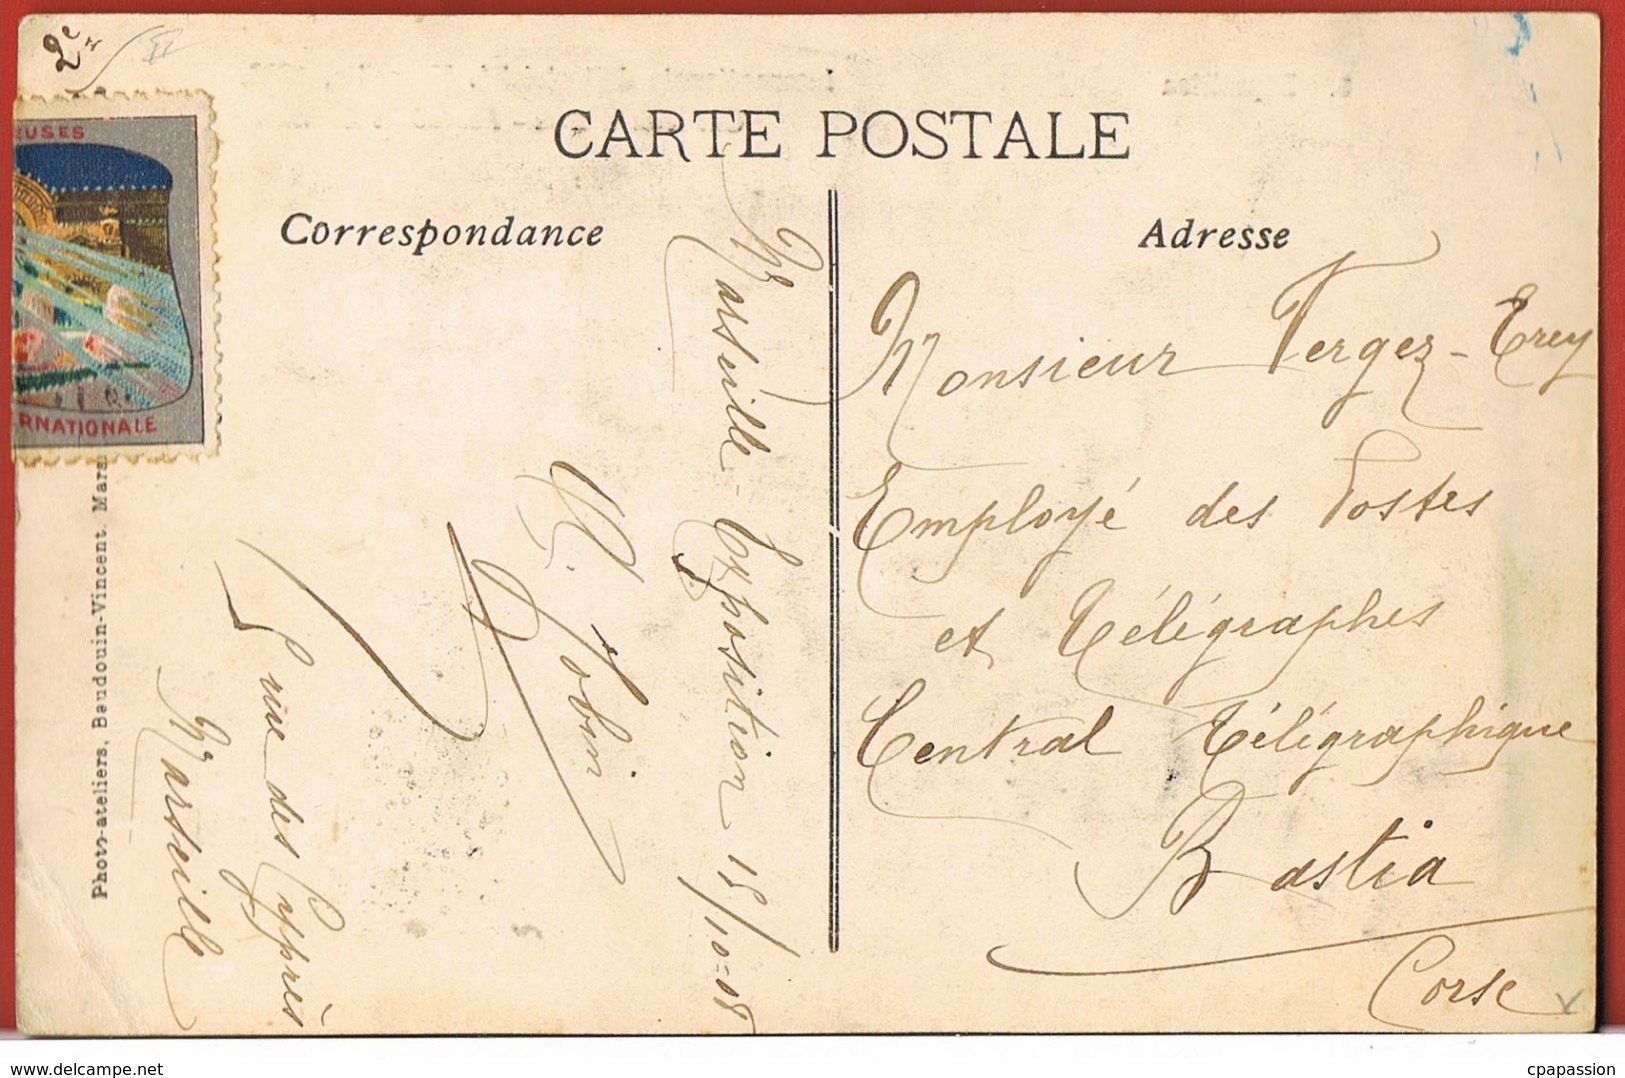 2e
CARTE POSTALE
Correspondance
Adresse
EUSES
RNATIONALE
Photo-ateliers, Baudouin-Vincent. Mars
Marseille - Exposition 15/10-08
Jobin
5 rue des Cyprès
Marseille
Monsieur Vergez-Trey
Employé des Postes
et Télégraphes
Central Télégraphique
Bastia
Corse
www.delcampe.net
cpapassion